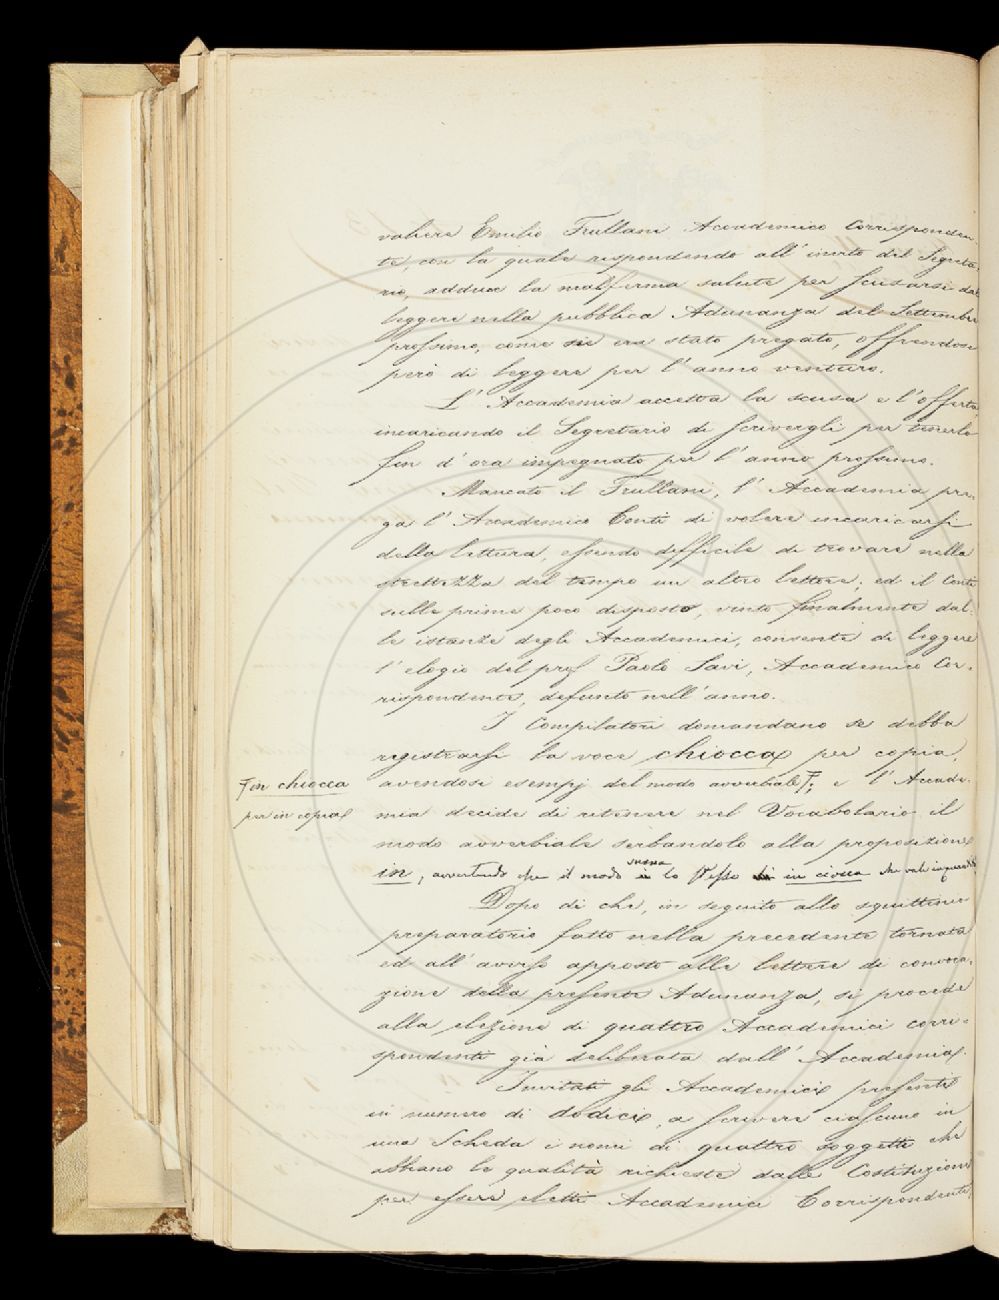 valiere Emilio Frullani Accademico Corrisponden-
te, con la quale rispondendo all'invito del Segreta-
rio, adduce la malferma salute per scusarsi dal
leggere nella pubblica Adunanza del Settembre
prossimo, come era stato pregato, offrendosi
però di leggere per l'anno venturo.
L'Accademia accetta la scusa e l'offerta
incaricando il Segretario di scrivergli per tenerlo
fin d'ora impegnato per l'anno prossimo.
Mancato il Frullani, l'Accademia pre-
ga l'Accademico Conti di volere incaricarsi
della lettura, essendo difficile di trovare nella
strettezza del tempo un altro lettore; ed il Conti
sulle prime poco disposto, vinto finalmente dal-
le istanze degli Accademici, consente di leggere
l'elogio del prof Paolo Savi, Accademico Cor-
rispondente, defunto nell'anno.
I Compilatori domandano se debba
registrarsi la voce chiocca per copia,
avendosi esempj del modo avverbiale F; e l'Accade-
F in chiocca
per in copia
mia decide di ritenere nel Vocabolario il
modo avverbiale serbandolo alla preposizione
in, avvertendo che il modo è lo stesso in ciocca che vale
Dopo di che, in seguito allo squittinio
preparatorio fatto nella precedente tornata
ed all'avviso apposto alle lettere di convoca-
zione della presente Adunanza, si procede
alla elezione di quattro Accademici corri-
spondenti già deliberata dall'Accademia.
Invitati gli Accademici presenti
in numero di dodici, a scrivere ciascuno in
una Scheda i nomi di quattro soggetti che
abbiano le qualità richieste dalle Costituzioni
per essere eletti Accademici Corrispondenti,